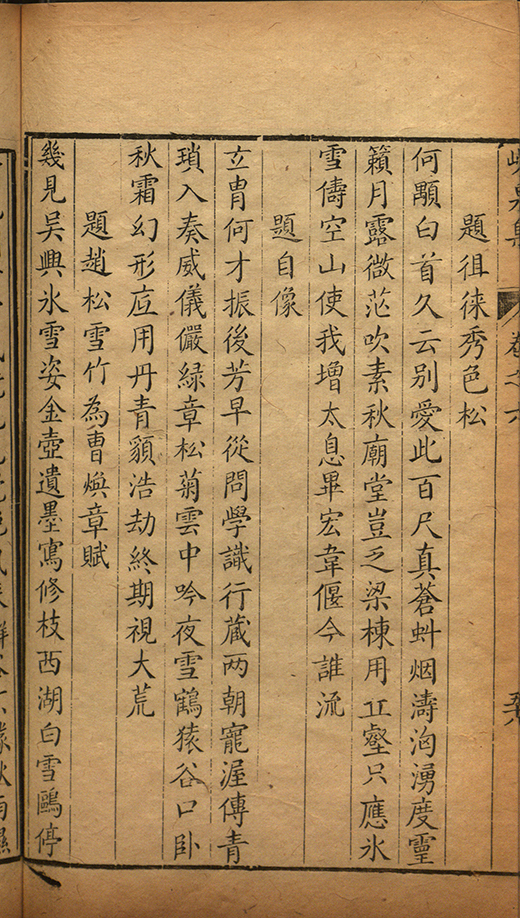 峴泉集 卷之六
題徂徠秀色松
何顒白首久云別愛此百尺真蒼虯烟濤洶湧度靈
籟月露微茫吹素秋廟堂豈乏梁棟用丘壑只應氷
雪儔空山使我增太息畢宏韋偃今誰流
題自像
立胄何才振後芳早從問學識行藏两朝寵渥傳青
瑣入奏威儀儼綠章松菊雲中吟夜雪鶴猿谷口卧
秋霜幻形应用丹青貌浩劫終期視大荒
題趙松雪竹為曹煥章賦
幾見吳興氷雪姿金壺遺墨寫修枝西湖白雪鷗停